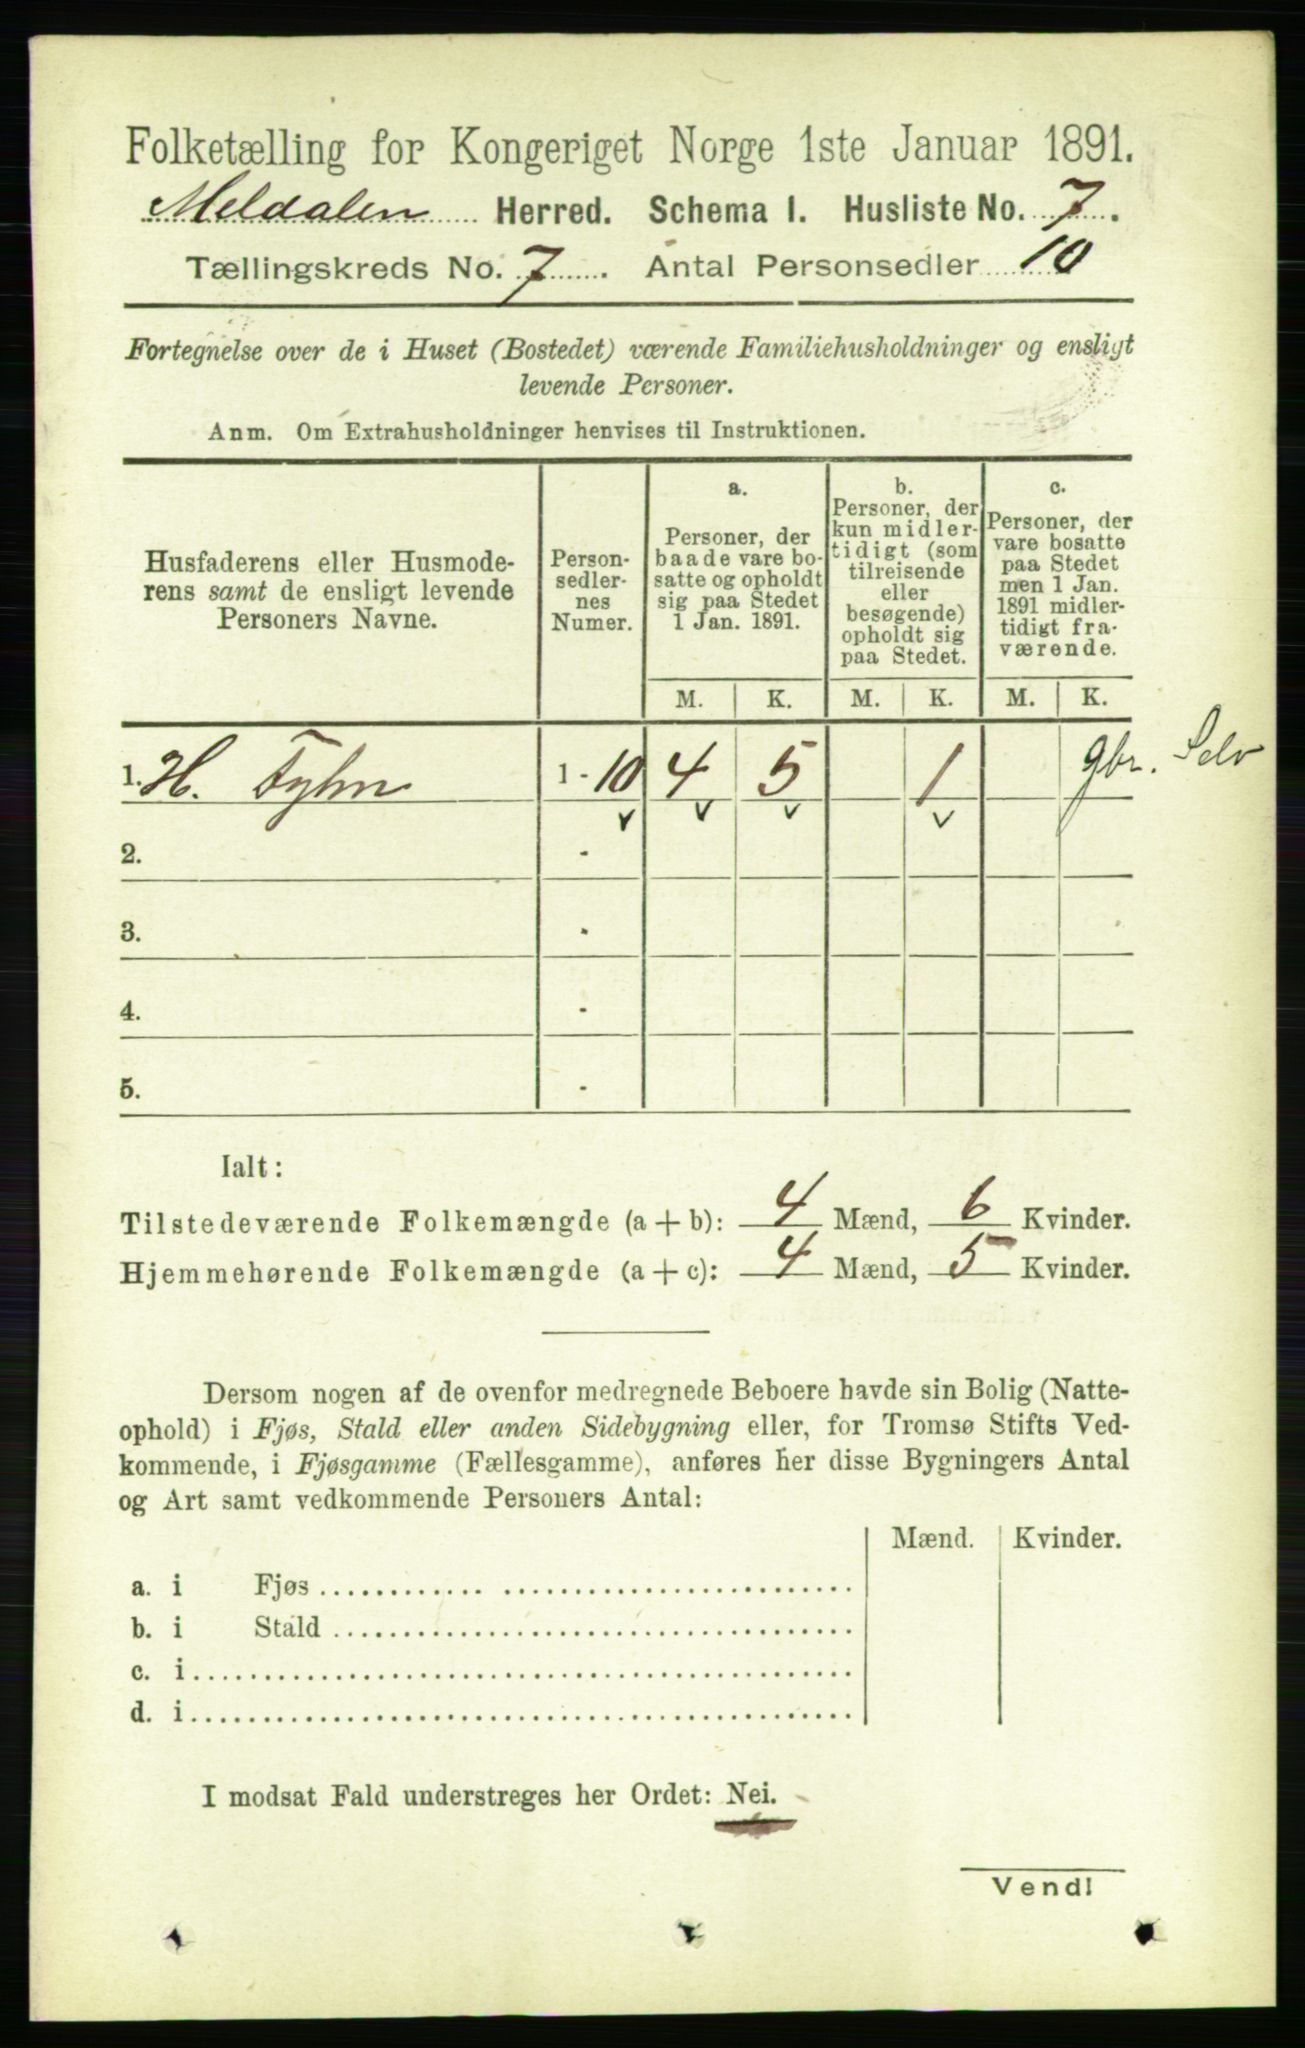 Folketælling for Kongeriget Norge 1ste Januar 1891.
Meldalen Herred. Schema I. Husliste No. 7.
Tællingskreds No. 7. Antal Personsedler 10
Fortegnelse over de i Huset (Bostedet) værende Familiehusholdninger og ensligt
levende Personer.
Anm. Om Extrahusholdninger henvises til Instruktionen.
Husfaderens eller Husmode-
rens samt de ensligt levende
Personers Navne.
Person-
sedler-
nes
Numer.
a.
Personer, der
baade vare bo-
satte og opholdt
sig paa Stedet
1 Jan. 1891.
b.
Personer, der
kun midler-
tidigt (som
tilreisende
eller
besøgende)
opholdt sig
paa Stedet.
c.
Personer, der
vare bosatte
paa Stedet
men 1 Jan.
1891 midler-
tidigt fra-
værende.
M. K. M. K. M. K.
1. H. Tyhn 1 - 10 4 5 1 gbr. Selv
2. -
3. -
4. -
5. -
Ialt:
Tilstedeværende Folkemængde (a + b): 4 Mænd, 6 Kvinder.
Hjemmehørende Folkemængde (a + c): 4 Mænd, 5 Kvinder.
Dersom nogen af de ovenfor medregnede Beboere havde sin Bolig (Natte-
ophold) i Fjøs, Stald eller anden Sidebygning eller, for Tromsø Stifts Ved-
kommende, i Fjøsgamme (Fællesgamme), anføres her disse Bygningers Antal
og Art samt vedkommende Personers Antal:
Mænd. Kvinder.
a. i Fjøs
b. i Stald
c. i
d. i
I modsat Fald understreges her Ordet: Nei.
Vend!